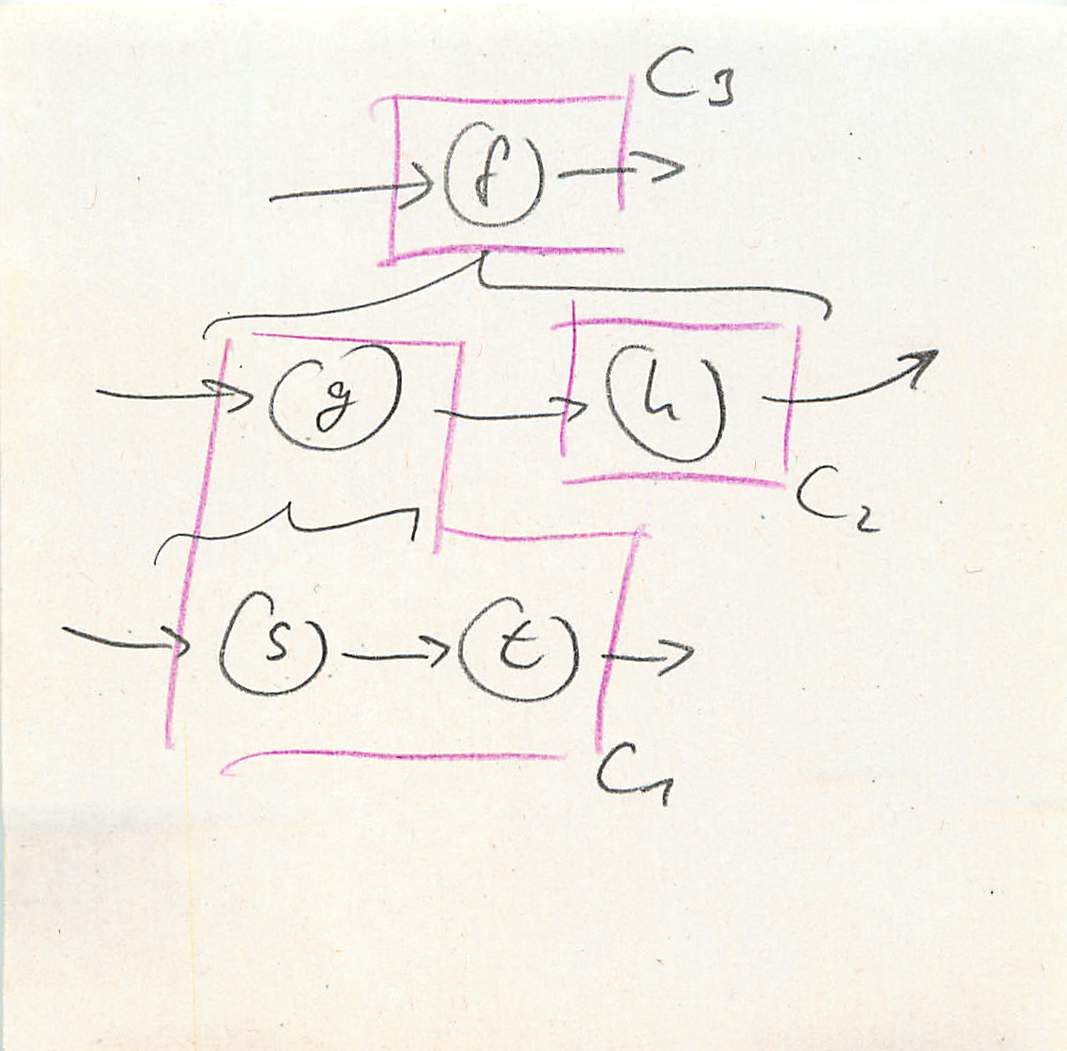 C3
f
g
h
C2
s
t
C1